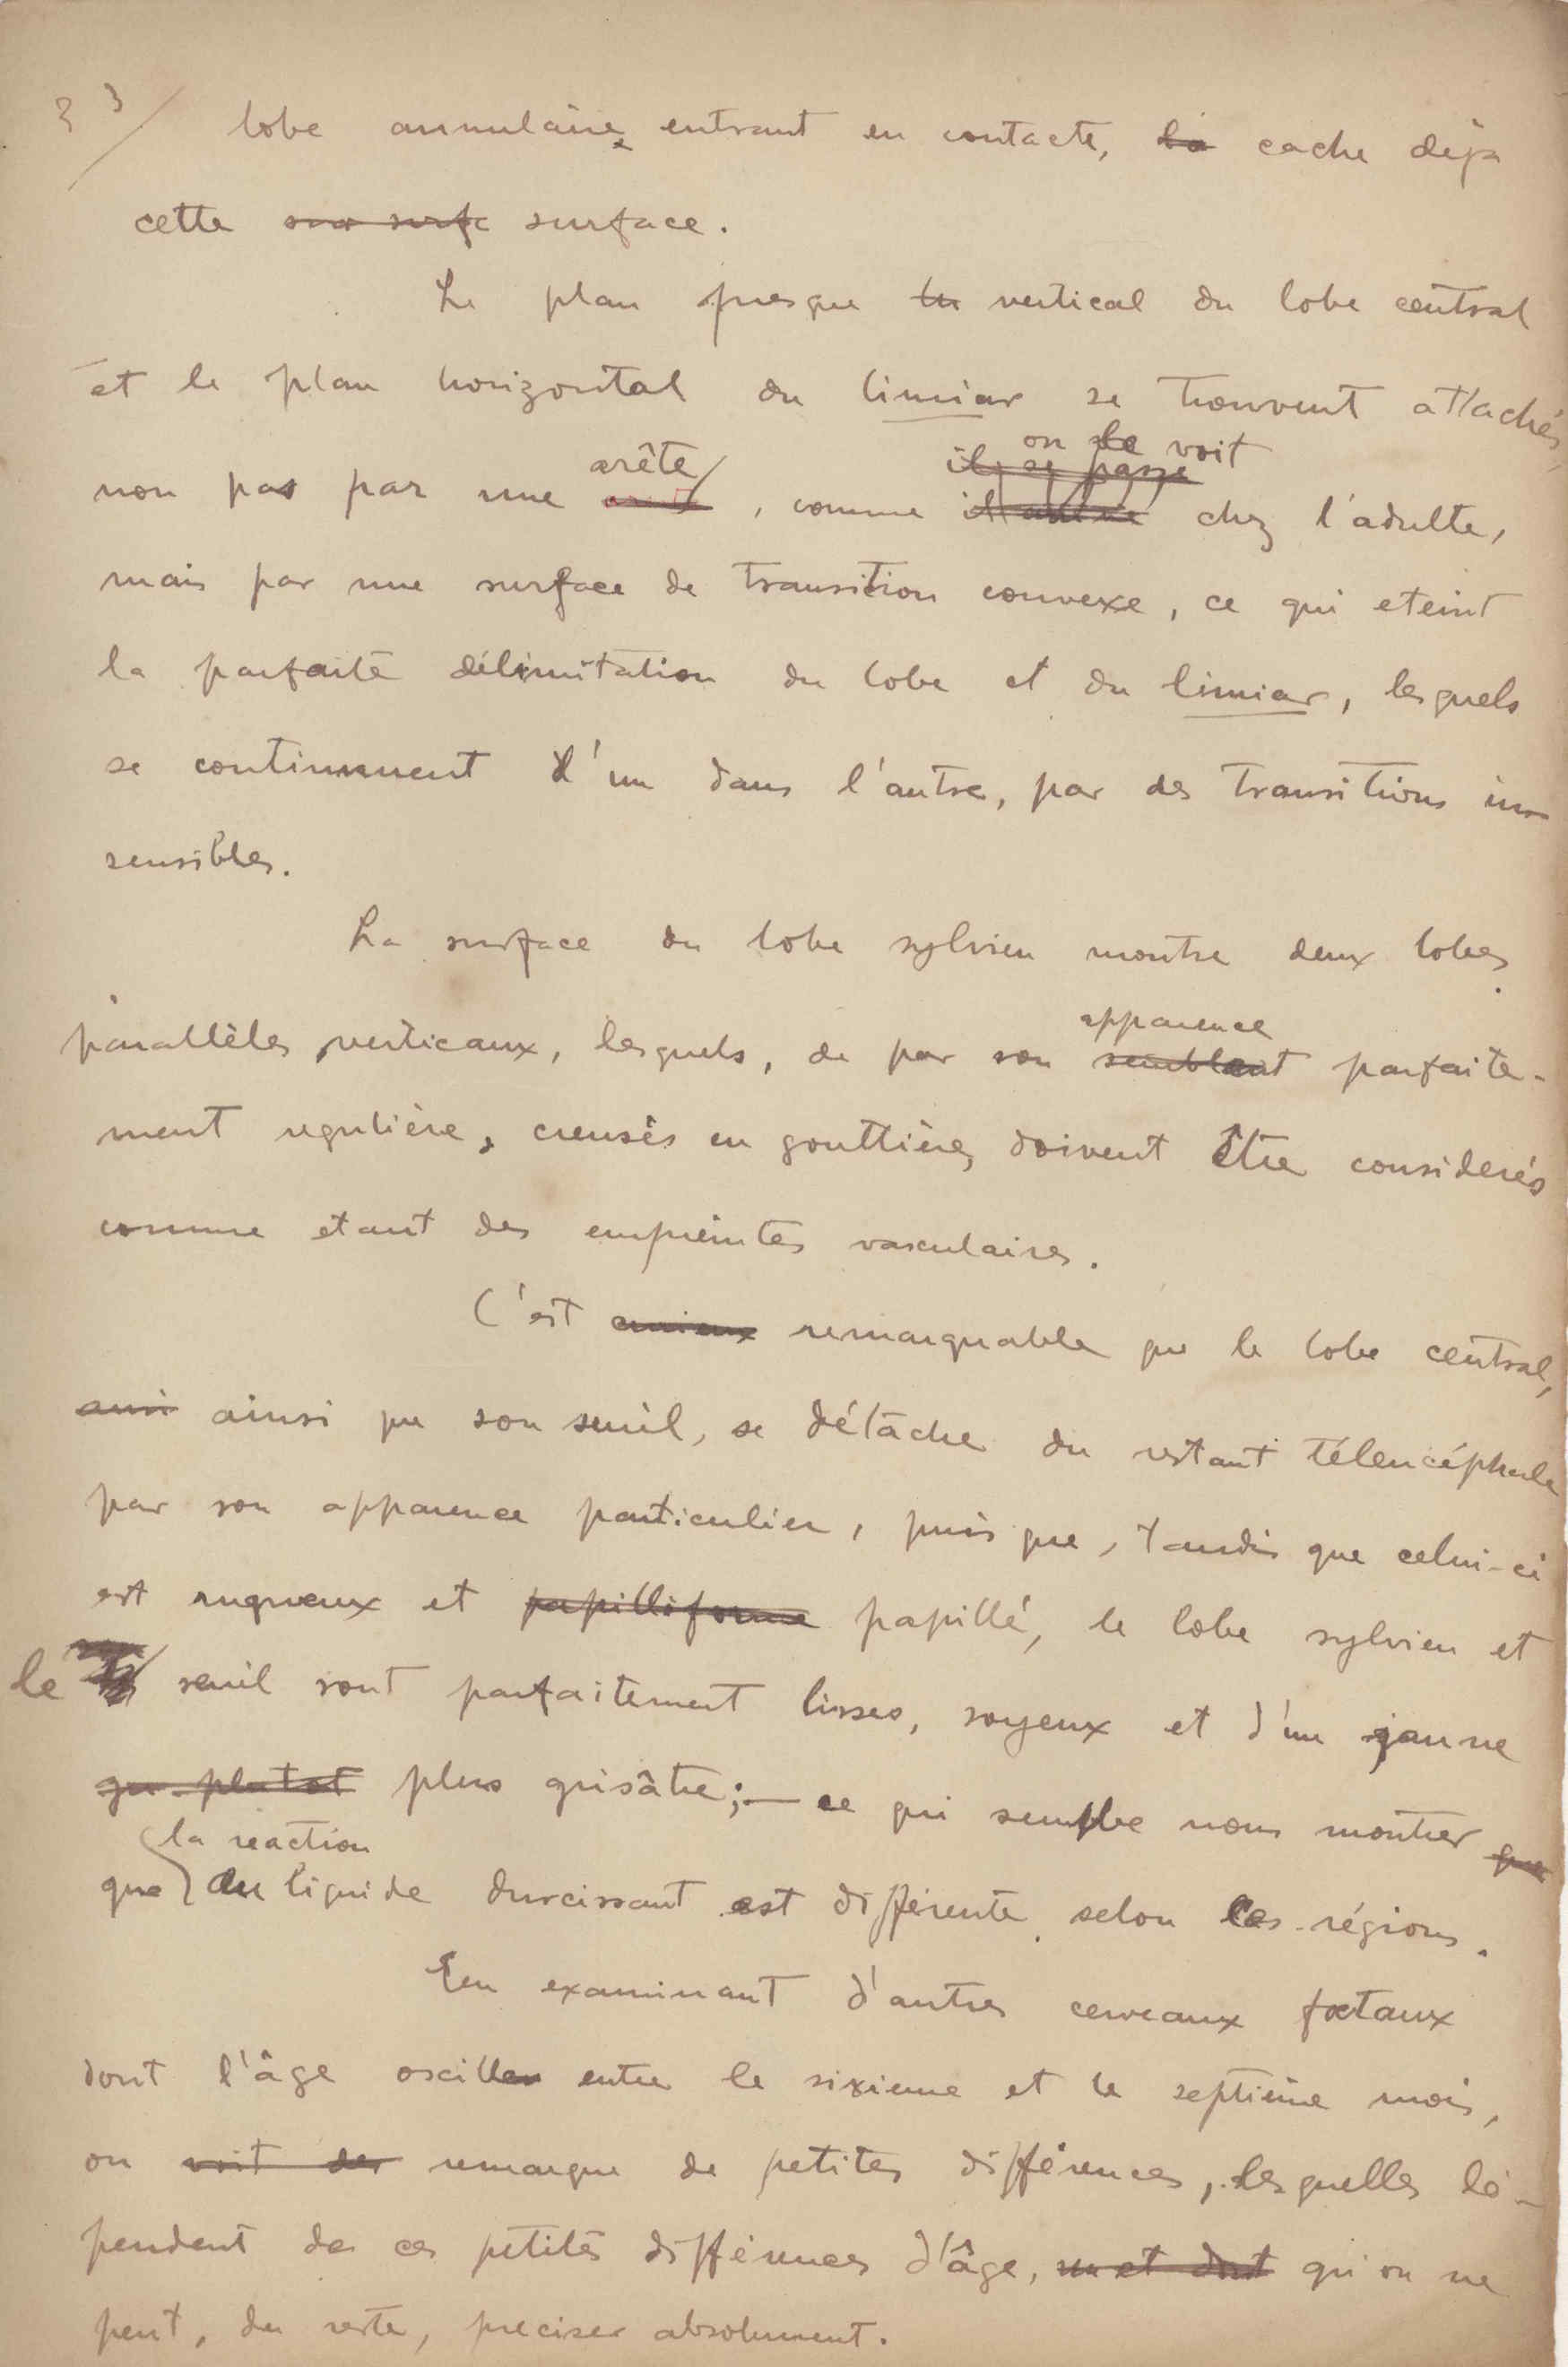 33/ lobe annulaire, entrant en contacte, la cache dèja
cette son surfc surface.
Le plan presque ho vertical du lobe central
et le plan horizontal du limiar se trouvent attachés,
arête on le voit
il se passe
non pas par une , comme chez l'adulte,
mais par une surface de transition convexe, ce qui eteint
la parfaite délimitation du lobe et du limiar, lesquels
se continuent l'un dans l'autre, par des transitions in-
sensibles.
La surface du lobe sylvien montre deux lobes
parallèles, verticaux, lesquels, de par son semblent parfaite-
apparence
ment regulière, creusés en gouttière, doivent être considerés
comme etant des empreintes vasculaires.
C'est curieux remarquable que le lobe central,
ainsi que son seuil, se détache du restant télencéphale
par son apparence particulier, puis que, tandis que celui-ci
est rugueux et papilliforme papillé, le lobe sylvien et
le seuil sont parfaitement lisses, soyeux et d'un jaune
que plutot plus grisâtre;— ce qui semble nous montrer que
la reaction
que du liquide durcissant est différente selon les régions.
En examinant d'autres cerveaux fœtaux
dont l'âge oscille entre le sixieme et le septième mois,
on voit des remarque de petites différences, lesquelles dé-
pendent de ces petites différences d'âge, et dont qu'on ne
peut, du reste, preciser absolument.